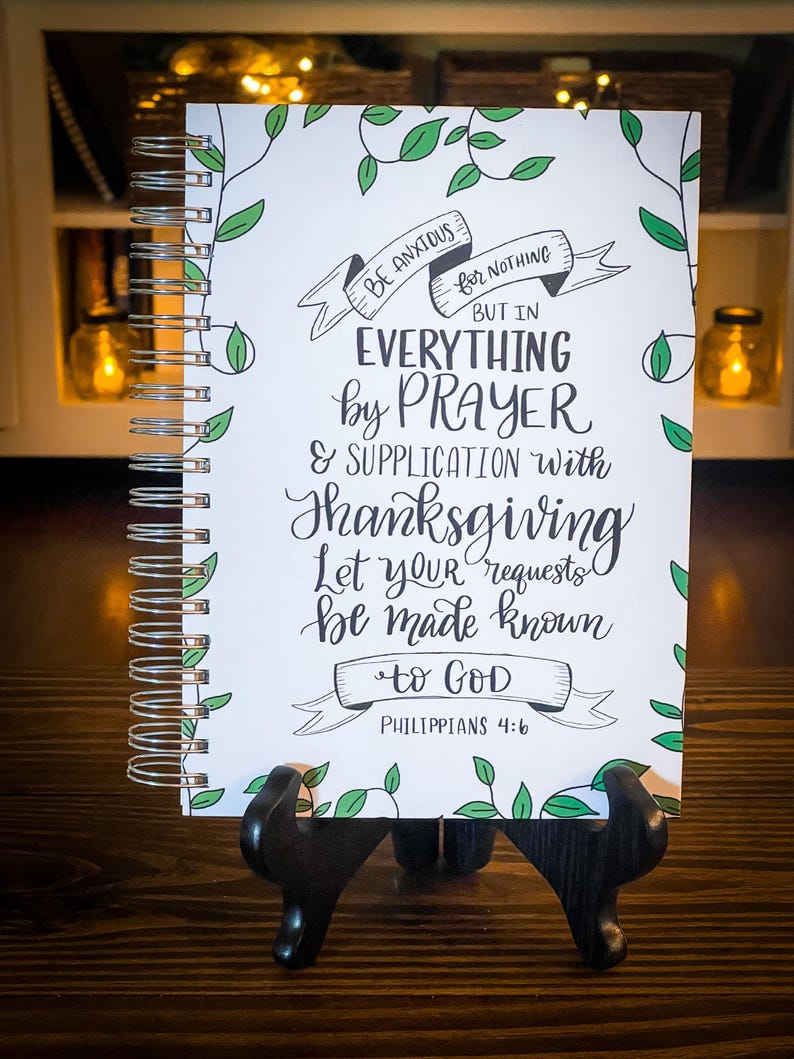 BE ANXIOUS
for NOTHING
BUT IN
EVERYTHING
by PRAYER
& SUPPLICATION with
Thanksgiving
Let YOUR requests
be made known
to GOD
PHILIPPIANS 4:6